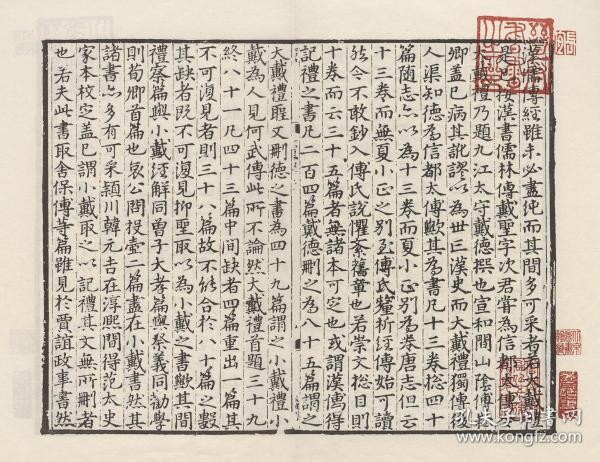 漢儒傳經雖未必盡純而其間多可采者若大戴禮
是已按漢書儒林傳戴聖字次君嘗為信都太傅
大戴禮乃題九江太守戴德撰也宣和間山陰傅崧
卿盖已病其訛謬以為丗三漢史而大戴禮獨傳後
人渠知德為信都太傅歟其為書凡十三卷捴四十
篇隨志亦以為十三卷而夏小正別為卷唐志但云
十三卷而無夏小正之別至傅氏釐析經傳始可讀
然今不敢鈔入傅氏說懼紊舊章也若崇文捴目則
十卷而云三十五篇者無諸本可定也或謂漢儒得
記禮之書凡二百四篇戴德刪之為八十五篇謂之
大戴禮聖又刪德之書為四十九篇謂之小戴禮小
戴為人見何武傳此所不論然大戴禮首題三十九
終八十一凡四十三篇中間缺者四篇重出一篇其
不可復見者則三十八篇故不能合於八十篇之數
其缺者既不可復見抑聖取以為小戴之書歟其間
禮察篇與小戴經解同曾子大孝篇與祭義同勸學
則荀卿首篇也哀公問投壺二篇盡在小戴書然其
諸書亦多有可采潁川韓元吉在淳熙間得范太史
家本校定盖已謂小戴取之以記禮其文無所刪者
也若夫此書取舍保傅等篇雖見於賈誼政事書然
孔夫子旧书网
www.kongfz.com